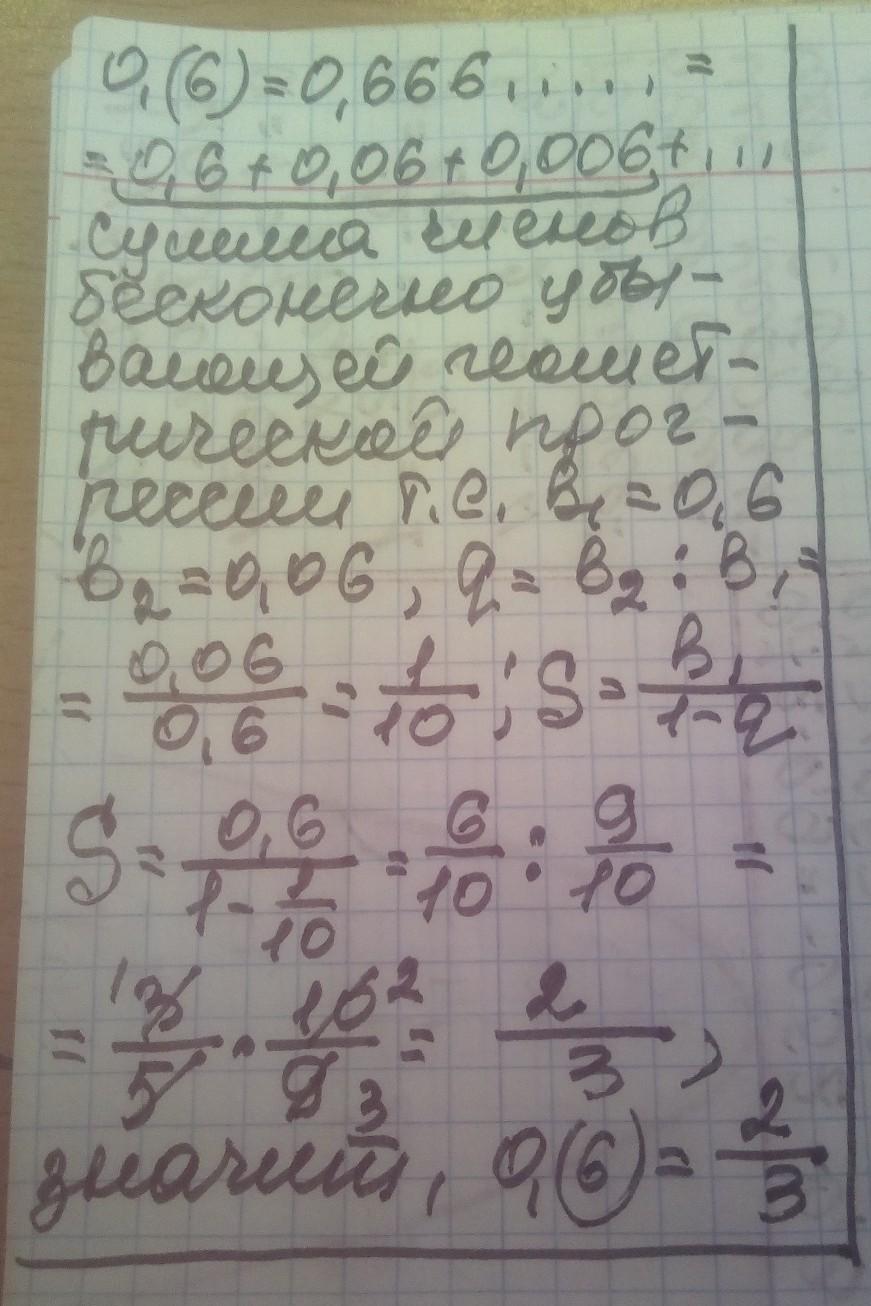 0,(6)=0,666,....,=
=0,6+0,06+0,006+...
сумма членов
бесконечно убы-
вающей геомет-
рической прог-
рессии т.е. в₁=0,6
в₂=0,06, q=в₂:в₁=
=0,06/0,6=1/10; S=в₁/1-q
S=0,6/1-1/10=6/10:9/10=
=3/5·10/9=2/3,
значит, 0,(6)=2/3